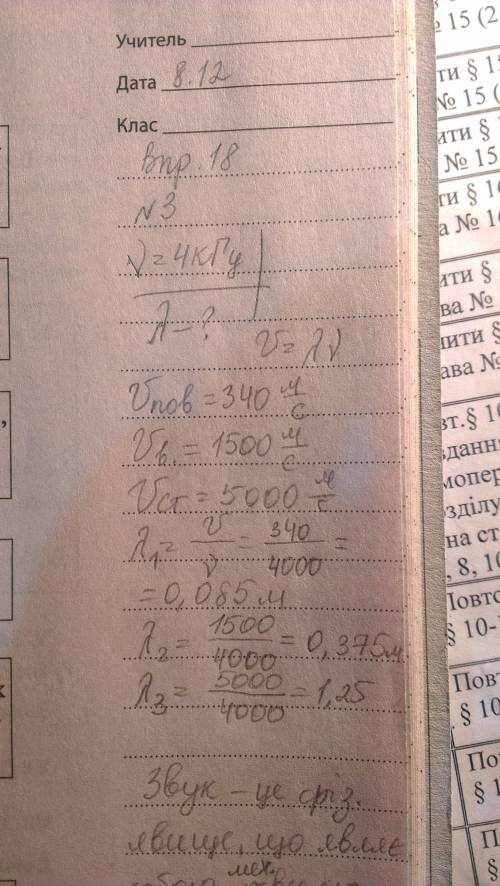 Учитель
Дата 8.12
Клас
Впр. 18
№3
ν = 4кГц
λ - ?
v = λν
vпов = 340 м/с
vв. = 1500 м/с
vст = 5000 м/с
λ₁ = v/ν = 340/4000 =
= 0,085 м
λ₂ = 1500/4000 = 0,375 м
λ₃ = 5000/4000 = 1,25
Звук – це фіз.
явище, що являє
мех.
15 (2
ти § 15
№ 15 (
№ 15
ти § 1
а № 1
ти § 1
ва №
чити §
ава №
вт.§ 10
вдання
мопер
зділу
на ст
, 8, 10
Повто
§ 10-
Повт
§ 10
По
§ 1
П
§